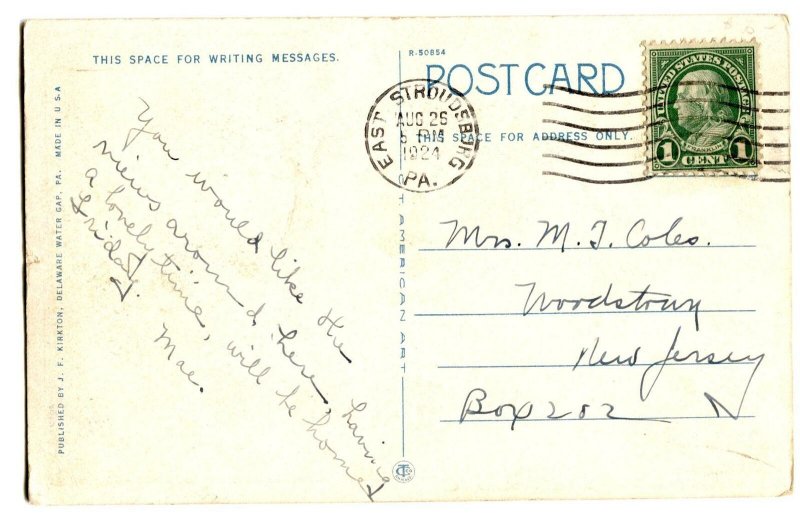 THIS SPACE FOR WRITING MESSAGES.
You would like the
views around here, having
a lovely time, will be home
Friday.
Mae.
PUBLISHED BY J. F. KIRKTON, DELAWARE WATER GAP, PA. MADE IN U.S.A
R-50854
POSTCARD
THIS SPACE FOR ADDRESS ONLY.
EAST STROUDSBURG
AUG 26
1924
PA.
UNITED STATES POSTAGE
FRANKLIN
1 CENT 1
AMERICAN ART
Mrs. M. T. Coles.
Woodstown
New Jersey
Box 202